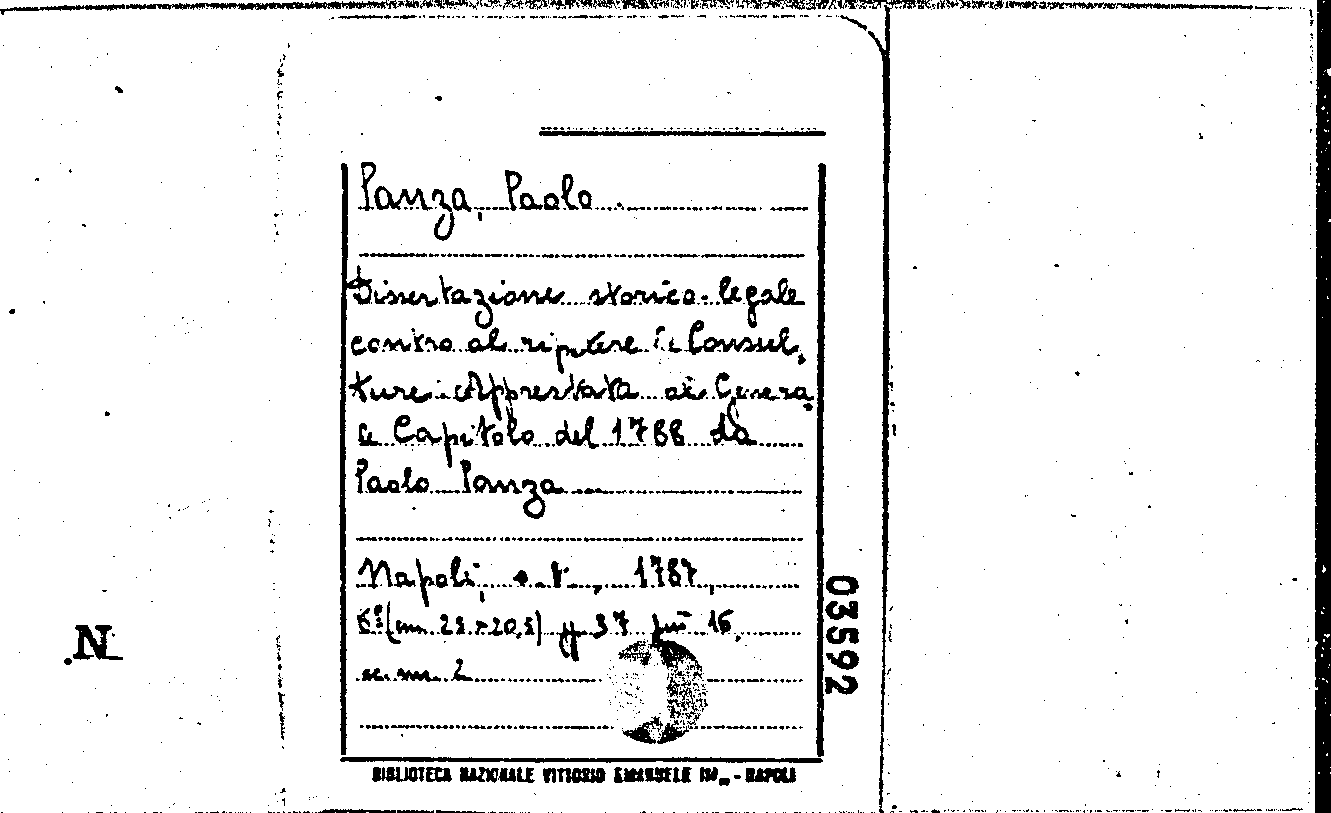 Panza, Paolo
Dissertazione storico-legale
contro al ripetere le Consul,
ture. Apprestata al Genera,
le Capitolo del 1788 da
Paolo Panza
Napoli, s.t., 1787,
8º (cm. 25 × 20,5) pp. 37 più 16,
c. nn. 2
03592
N
BIBLIOTECA NAZIONALE VITTORIO EMANUELE III - NAPOLI